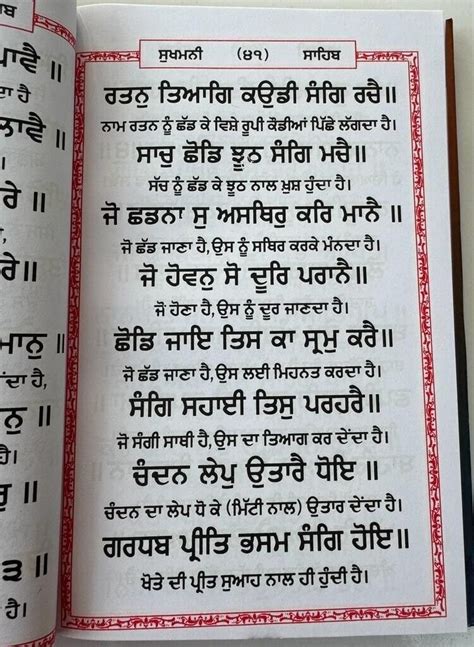 ਬ
ਪਾਵੈ ॥
ਹੈ
ਲਾਵੈ ॥
ਹੈ।
ਰੇ ॥
ਰੇ॥
ਮਾਨੁ ॥
ਦਾ ਹੈ,
ਨੁ ॥
ਹੈ।
ਰੁ ॥
੩ ॥
ਹੈ।
ਸੁਖਮਨੀ (੪੧) ਸਾਹਿਬ
ਰਤਨੁ ਤਿਆਗਿ ਕਉਡੀ ਸੰਗਿ ਰਚੈ॥
ਨਾਮ ਰਤਨ ਨੂੰ ਛੱਡ ਕੇ ਵਿਸ਼ੇ ਰੂਪੀ ਕੌਡੀਆਂ ਪਿੱਛੇ ਲੱਗਦਾ ਹੈ।
ਸਾਚੁ ਛੋਡਿ ਝੂਠ ਸੰਗਿ ਮਚੈ॥
ਸੱਚ ਨੂੰ ਛੱਡ ਕੇ ਝੂਠ ਨਾਲ ਖ਼ੁਸ਼ ਹੁੰਦਾ ਹੈ।
ਜੋ ਛਡਨਾ ਸੁ ਅਸਥਿਰੁ ਕਰਿ ਮਾਨੈ ॥
ਜੋ ਛੱਡ ਜਾਣਾ ਹੈ, ਉਸ ਨੂੰ ਸਥਿਰ ਕਰਕੇ ਮੰਨਦਾ ਹੈ।
ਜੋ ਹੋਵਨੁ ਸੋ ਦੂਰਿ ਪਰਾਨੈ॥
ਜੋ ਹੋਣਾ ਹੈ, ਉਸ ਨੂੰ ਦੂਰ ਜਾਣਦਾ ਹੈ।
ਛੋਡਿ ਜਾਇ ਤਿਸ ਕਾ ਸ੍ਰਮੁ ਕਰੈ॥
ਜੋ ਛੱਡ ਜਾਣਾ ਹੈ, ਉਸ ਲਈ ਮਿਹਨਤ ਕਰਦਾ ਹੈ।
ਸੰਗਿ ਸਹਾਈ ਤਿਸੁ ਪਰਹਰੈ॥
ਜੋ ਸੰਗੀ ਸਾਥੀ ਹੈ, ਉਸ ਦਾ ਤਿਆਗ ਕਰ ਦੇਂਦਾ ਹੈ।
ਚੰਦਨ ਲੇਪੁ ਉਤਾਰੈ ਧੋਇ ॥
ਚੰਦਨ ਦਾ ਲੇਪ ਧੋ ਕੇ (ਮਿੱਟੀ ਨਾਲ) ਉਤਾਰ ਦੇਂਦਾ ਹੈ।
ਗਰਧਬ ਪ੍ਰੀਤਿ ਭਸਮ ਸੰਗਿ ਹੋਇ॥
ਖੋਤੇ ਦੀ ਪ੍ਰੀਤ ਸੁਆਹ ਨਾਲ ਹੀ ਹੁੰਦੀ ਹੈ।